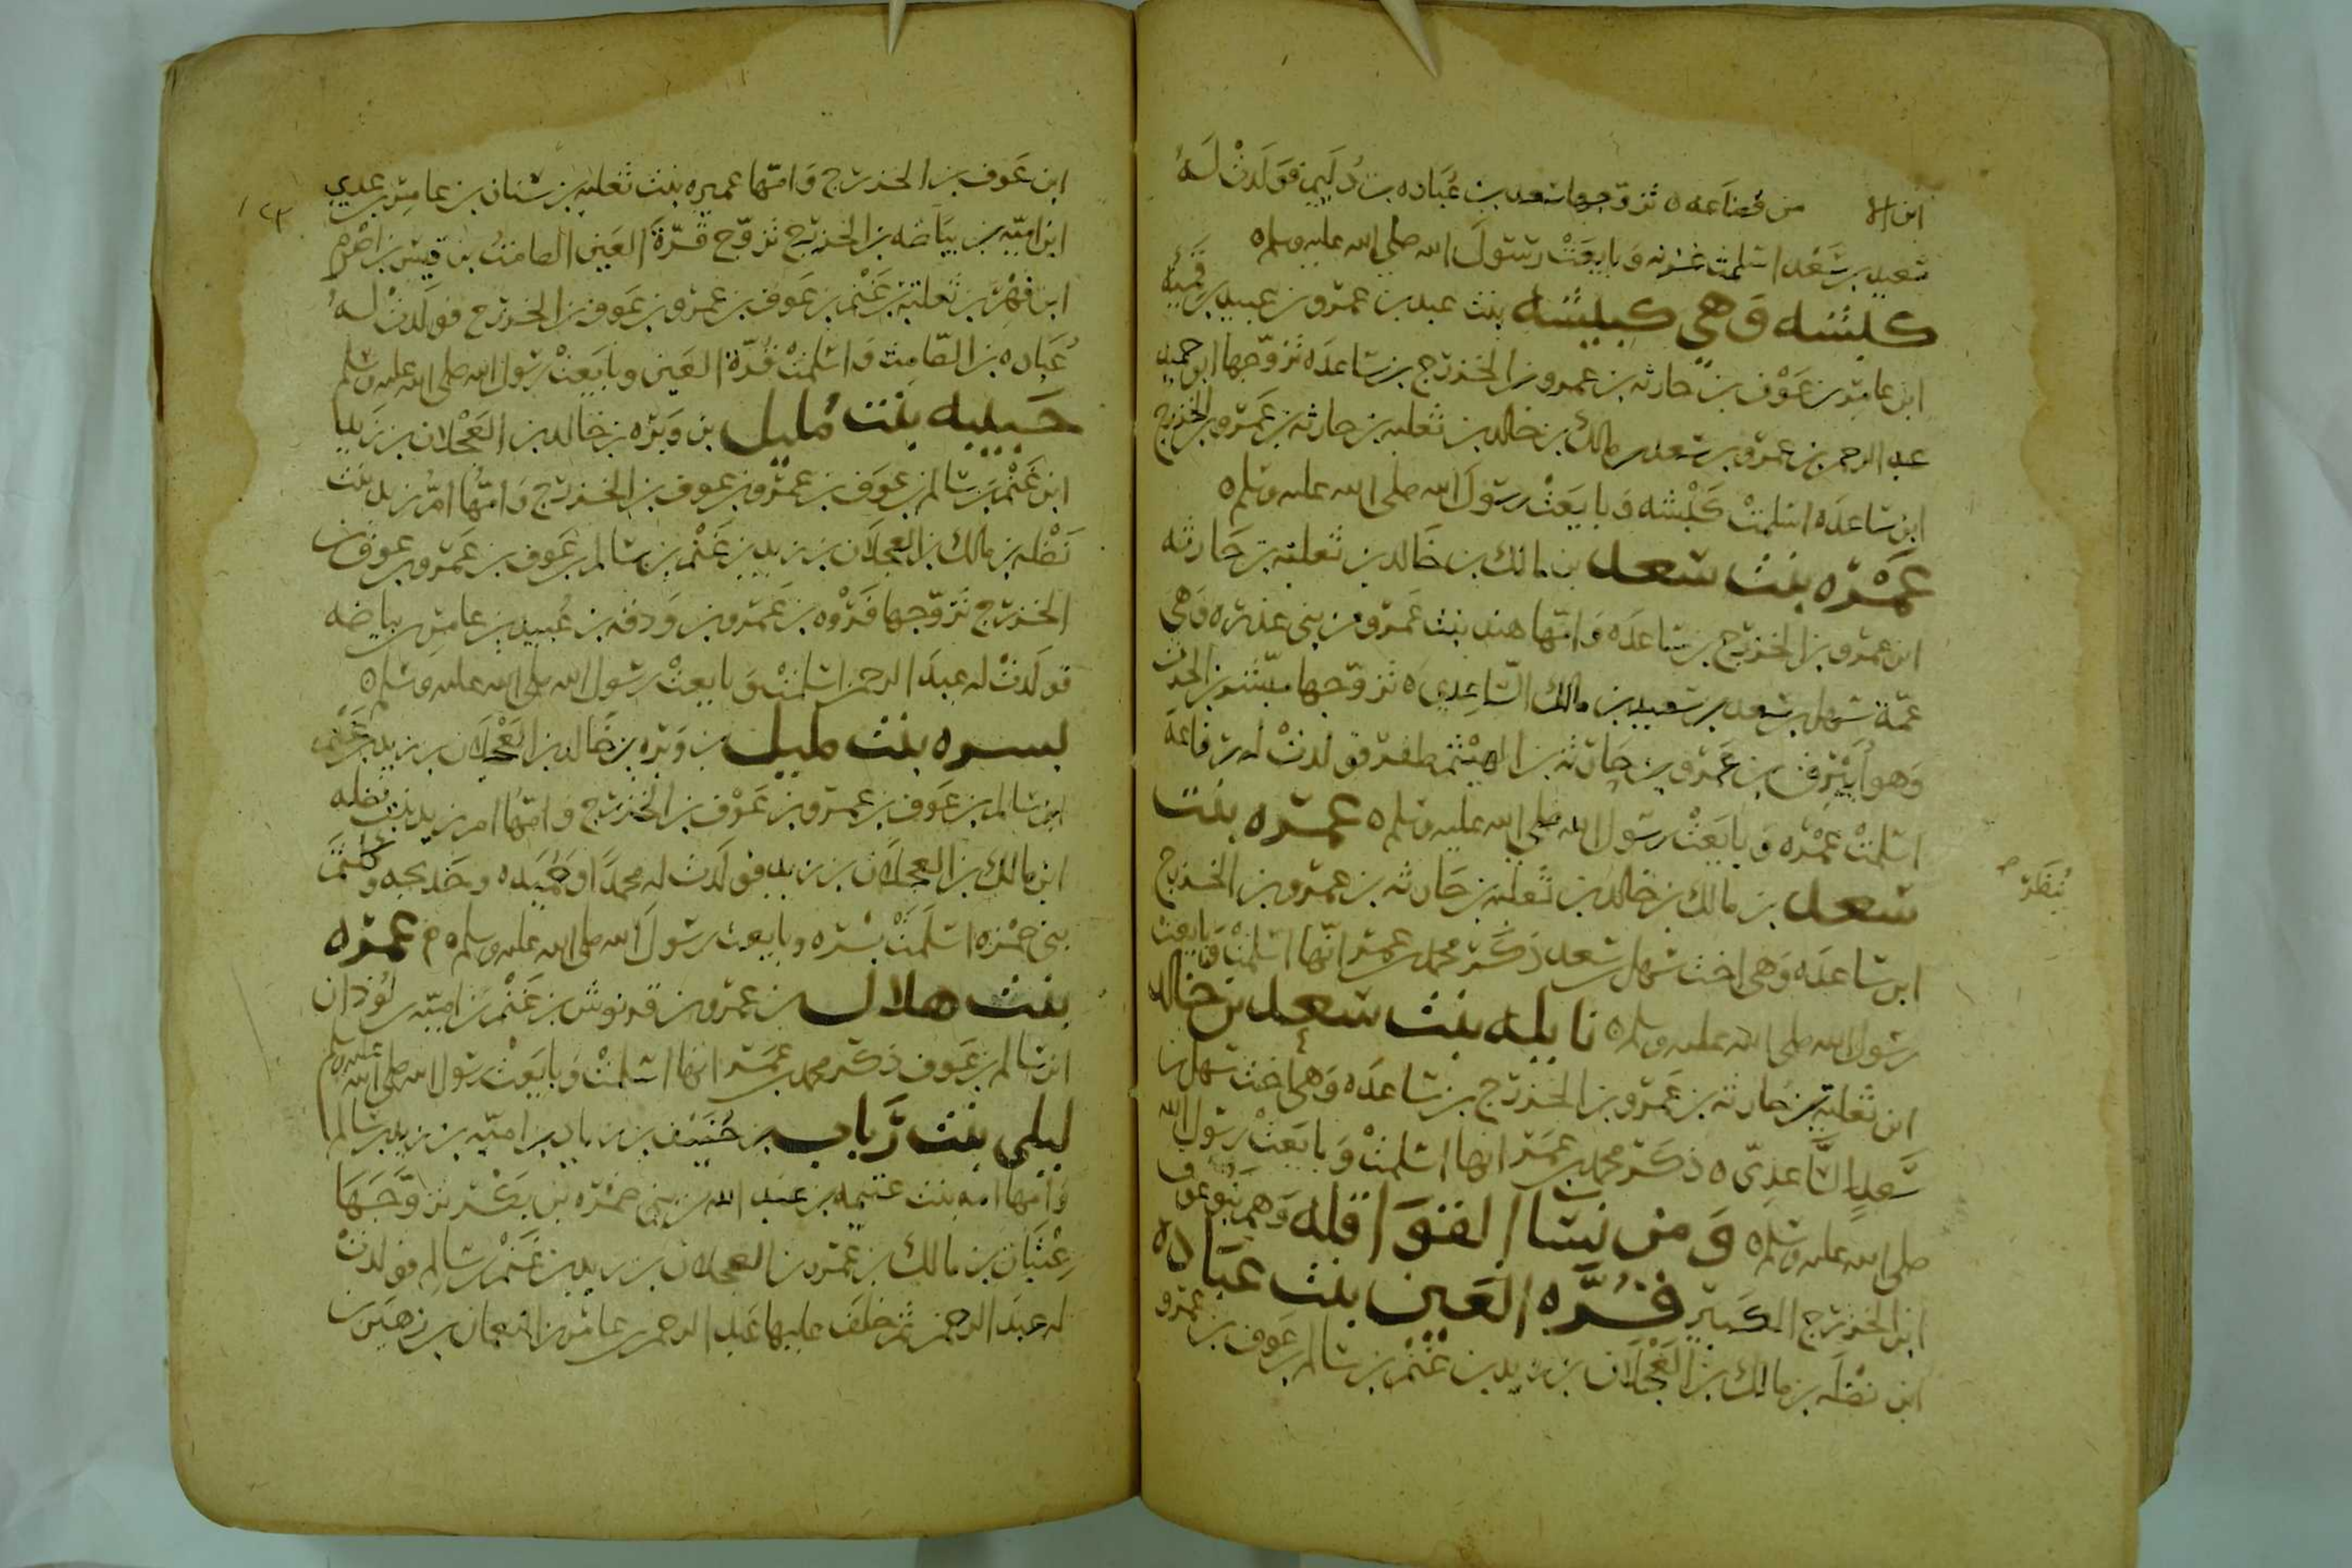 من قضاعه ه تزوجها سعد بن عباده بن دليم فولدت له
سعيد بن سعد اسلمت غزيه وبايعت رسول الله صلى الله عليه وسلم ه
كبشه وهي كبيشه بنت عبد بن عمرو بن عبيد بن قميئه
ابن عامر بن عوف بن حارثه بن عمرو بن الخزرج بن ساعده تزوجها ابو حميد
عبد الرحمن بن عمرو بن سعد بن مالك بن خالد بن ثعلبه بن حارثه بن عمرو بن الخزرج
ابن ساعده اسلمت كبشه وبايعت رسول الله صلى الله عليه وسلم ه
عمره بنت سعد بن مالك بن خالد بن ثعلبه بن حارثه
ابن عمرو بن الخزرج بن ساعده وامها هند بنت عمرو من بني عذره وهي
عمة سهل بن سعد بن سعيد بن مالك الساعدي ه تزوجها مبشر بن الحرث
وهو ابيرق بن عمرو بن حارثه بن الهيثم بن ظفر فولدت له رفاعه
اسلمت عمره وبايعت رسول الله صلى الله عليه وسلم ه عمره بنت
سعد بن مالك بن خالد بن ثعلبه بن حارثه بن عمرو بن الخزرج
ينظر
ابن ساعده وهي اخت سهل بن سعد ذكر محمد بن عمر انها اسلمت وبايعت
رسول الله صلى الله عليه وسلم ه نايله بنت سعد بن خالد
ابن ثعلبه بن حارثه بن عمرو بن الخزرج بن ساعده وهي اخت سهل بن
سعد الساعدي ه ذكر محمد بن عمر انها اسلمت وبايعت رسول الله
صلى الله عليه وسلم ه ومن نسا القواقله وهم بنو عوف
ابن الخزرج الكبير قره العين بنت عباده
ابن نضله بن مالك بن العجلان بن زيد بن غنم بن سالم بن عوف بن عمرو
ابن عوف بن الخزرج وامها عميره بنت ثعلبه بن سنان بن عامر بن عدي
ابن اميه بن بياضه بن الخزرج تزوج قرة العين الصامت بن قيس بن اصرم
ابن فهر بن ثعلبة بن غنم بن عوف بن عمرو بن عوف بن الخزرج فولدت له
عباده بن الصامت واسلمت قرة العين وبايعت رسول الله صلى الله عليه وسلم
حبيبه بنت مليل بن وبره بن خالد بن العجلان بن زيد
ابن غنم بن سالم بن عوف بن عمرو بن عوف بن الخزرج وامها ام زيد بنت
نضله بن مالك بن العجلان بن زيد بن غنم بن سالم بن عوف بن عمرو بن عوف بن
الخزرج تزوجها فروه بن عمرو بن ودفه بن عبيد بن عامر بن بياضه
فولدت له عبد الرحمن اسلمت وبايعت رسول الله صلى الله عليه وسلم ه
بسره بنت مليل بن وبره بن خالد بن العجلان بن زيد بن غنم
ابن سالم بن عوف بن عمرو بن عوف بن الخزرج وامها ام زيد بنت نضله
ابن مالك بن العجلان بن زيد فولدت له محمدا وحميده وخديجه
بني ضمره اسلمت بسره وبايعت رسول الله صلى الله عليه وسلم ه عمره
بنت هلال بن عمرو بن قربوش بن غنم بن اميه بن لوذان
ابن سالم بن عوف ذكر محمد بن عمر انها اسلمت وبايعت رسول الله صلى الله عليه وسلم
ليلى بنت رباب بن حنيف بن رباب بن اميه بن زيد بن سالم
وامها امه بنت بن عبد الله من بني ضمره بن بكر تزوجها
عتبان بن مالك بن عمرو بن العجلان بن زيد بن غنم بن سالم فولدت
له عبد الرحمن ثم خلف عليها عبد الرحمن بن عامر بن النعمان بن